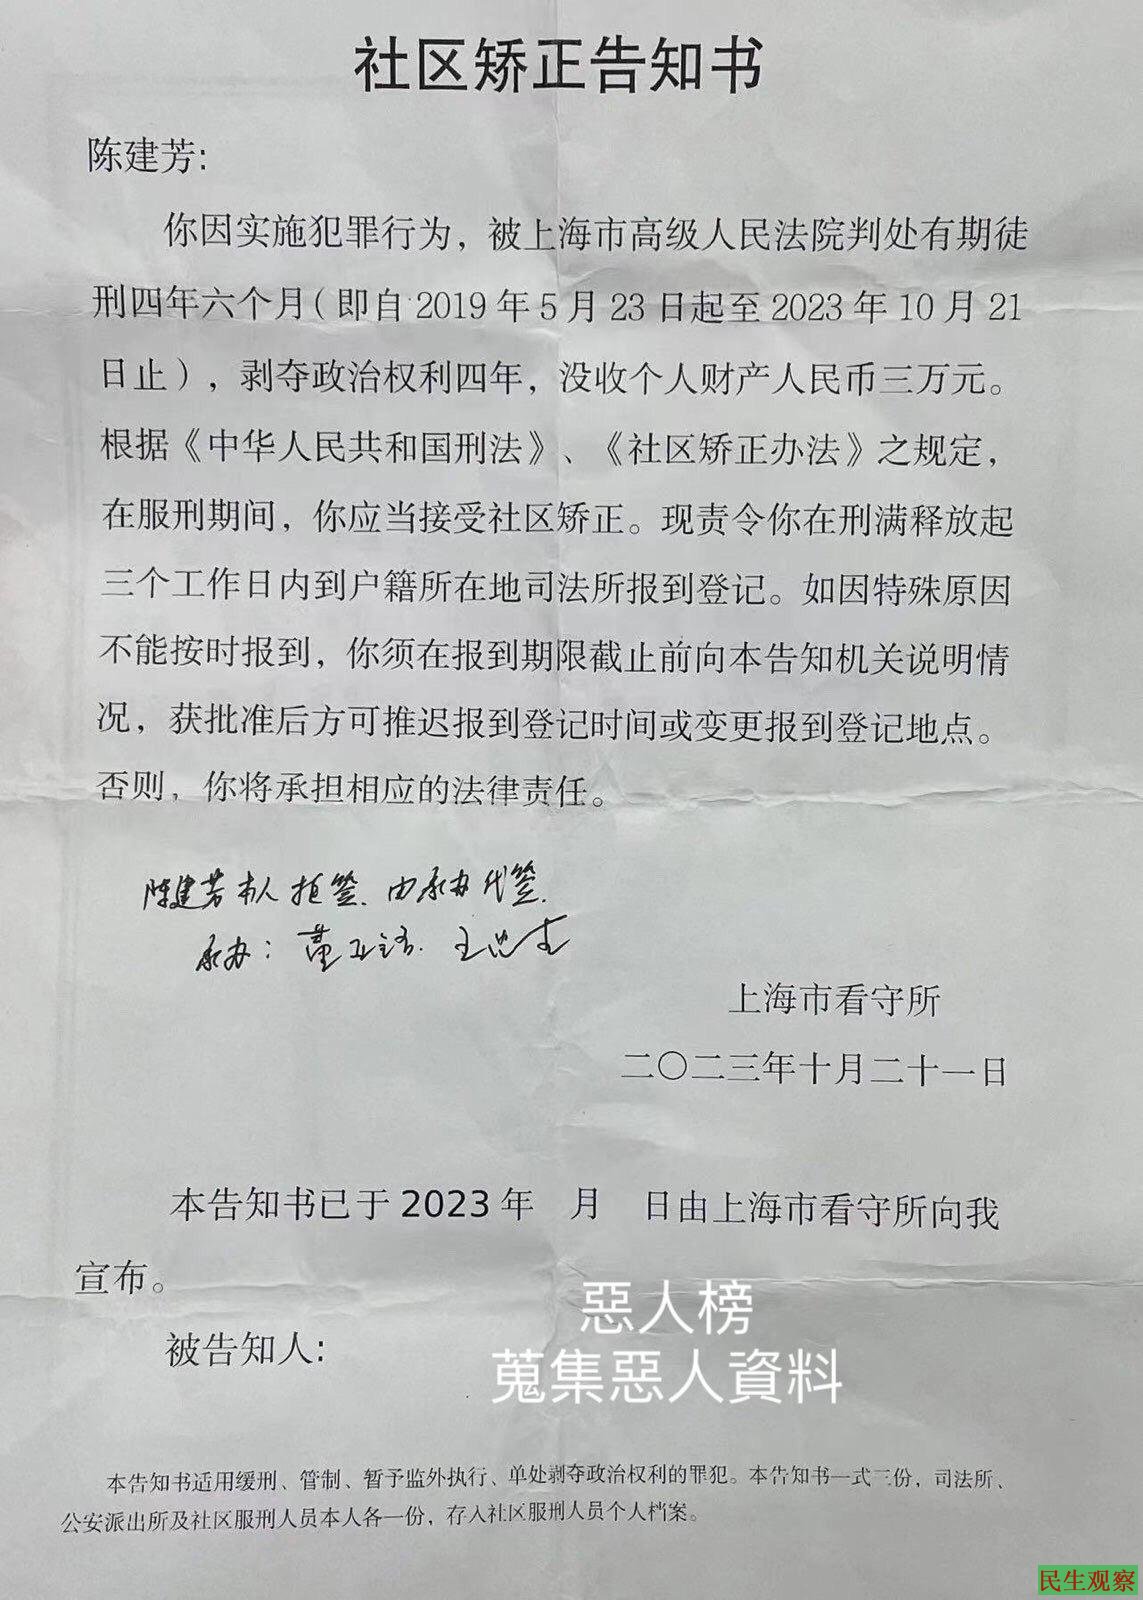 社区矫正告知书
陈建芳:
你因实施犯罪行为，被上海市高级人民法院判处有期徒
刑四年六个月(即自2019年5月23日起至2023年10月21
日止)，剥夺政治权利四年，没收个人财产人民币三万元。
根据《中华人民共和国刑法》、《社区矫正办法》之规定，
在服刑期间，你应当接受社区矫正。现责令你在刑满释放起
三个工作日内到户籍所在地司法所报到登记。如因特殊原因
不能按时报到，你须在报到期限截止前向本告知机关说明情
况，获批准后方可推迟报到登记时间或变更报到登记地点。
否则，你将承担相应的法律责任。
陈建芳本人拒签、由承办代签.
承办：
上海市看守所
二〇二三年十月二十一日
本告知书已于2023年 月 日由上海市看守所向我
宣布。
被告知人:
惡人榜
蒐集惡人資料
本告知书适用缓刑、管制、暂予监外执行、单处剥夺政治权利的罪犯。本告知书一式三份，司法所、
公安派出所及社区服刑人员本人各一份，存入社区服刑人员个人档案。
民生观察